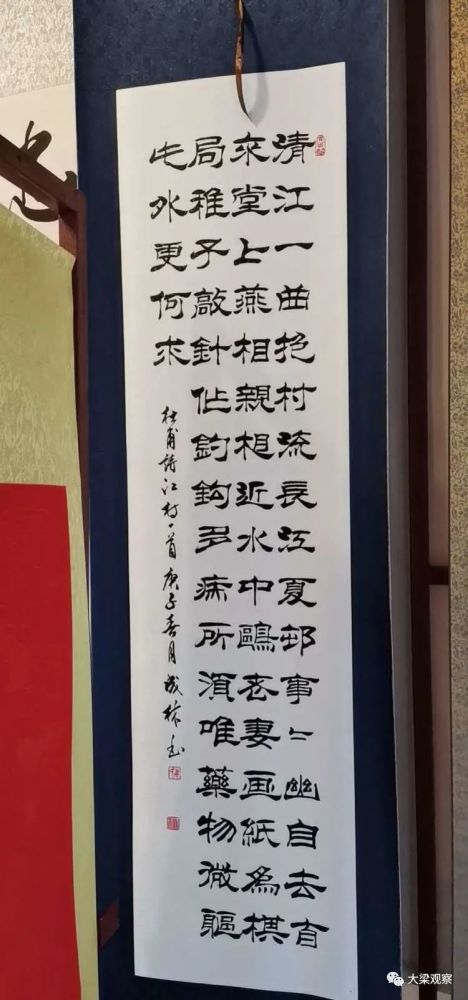 清江一曲抱村流長江夏邨事〻幽自去有
來堂上燕相親相近水中鷗老妻画紙為棋
局稚子敲針作釣鉤多病所須唯藥物微軀
此外更何求
杜甫詩江村一首庚子春月
大梁观察